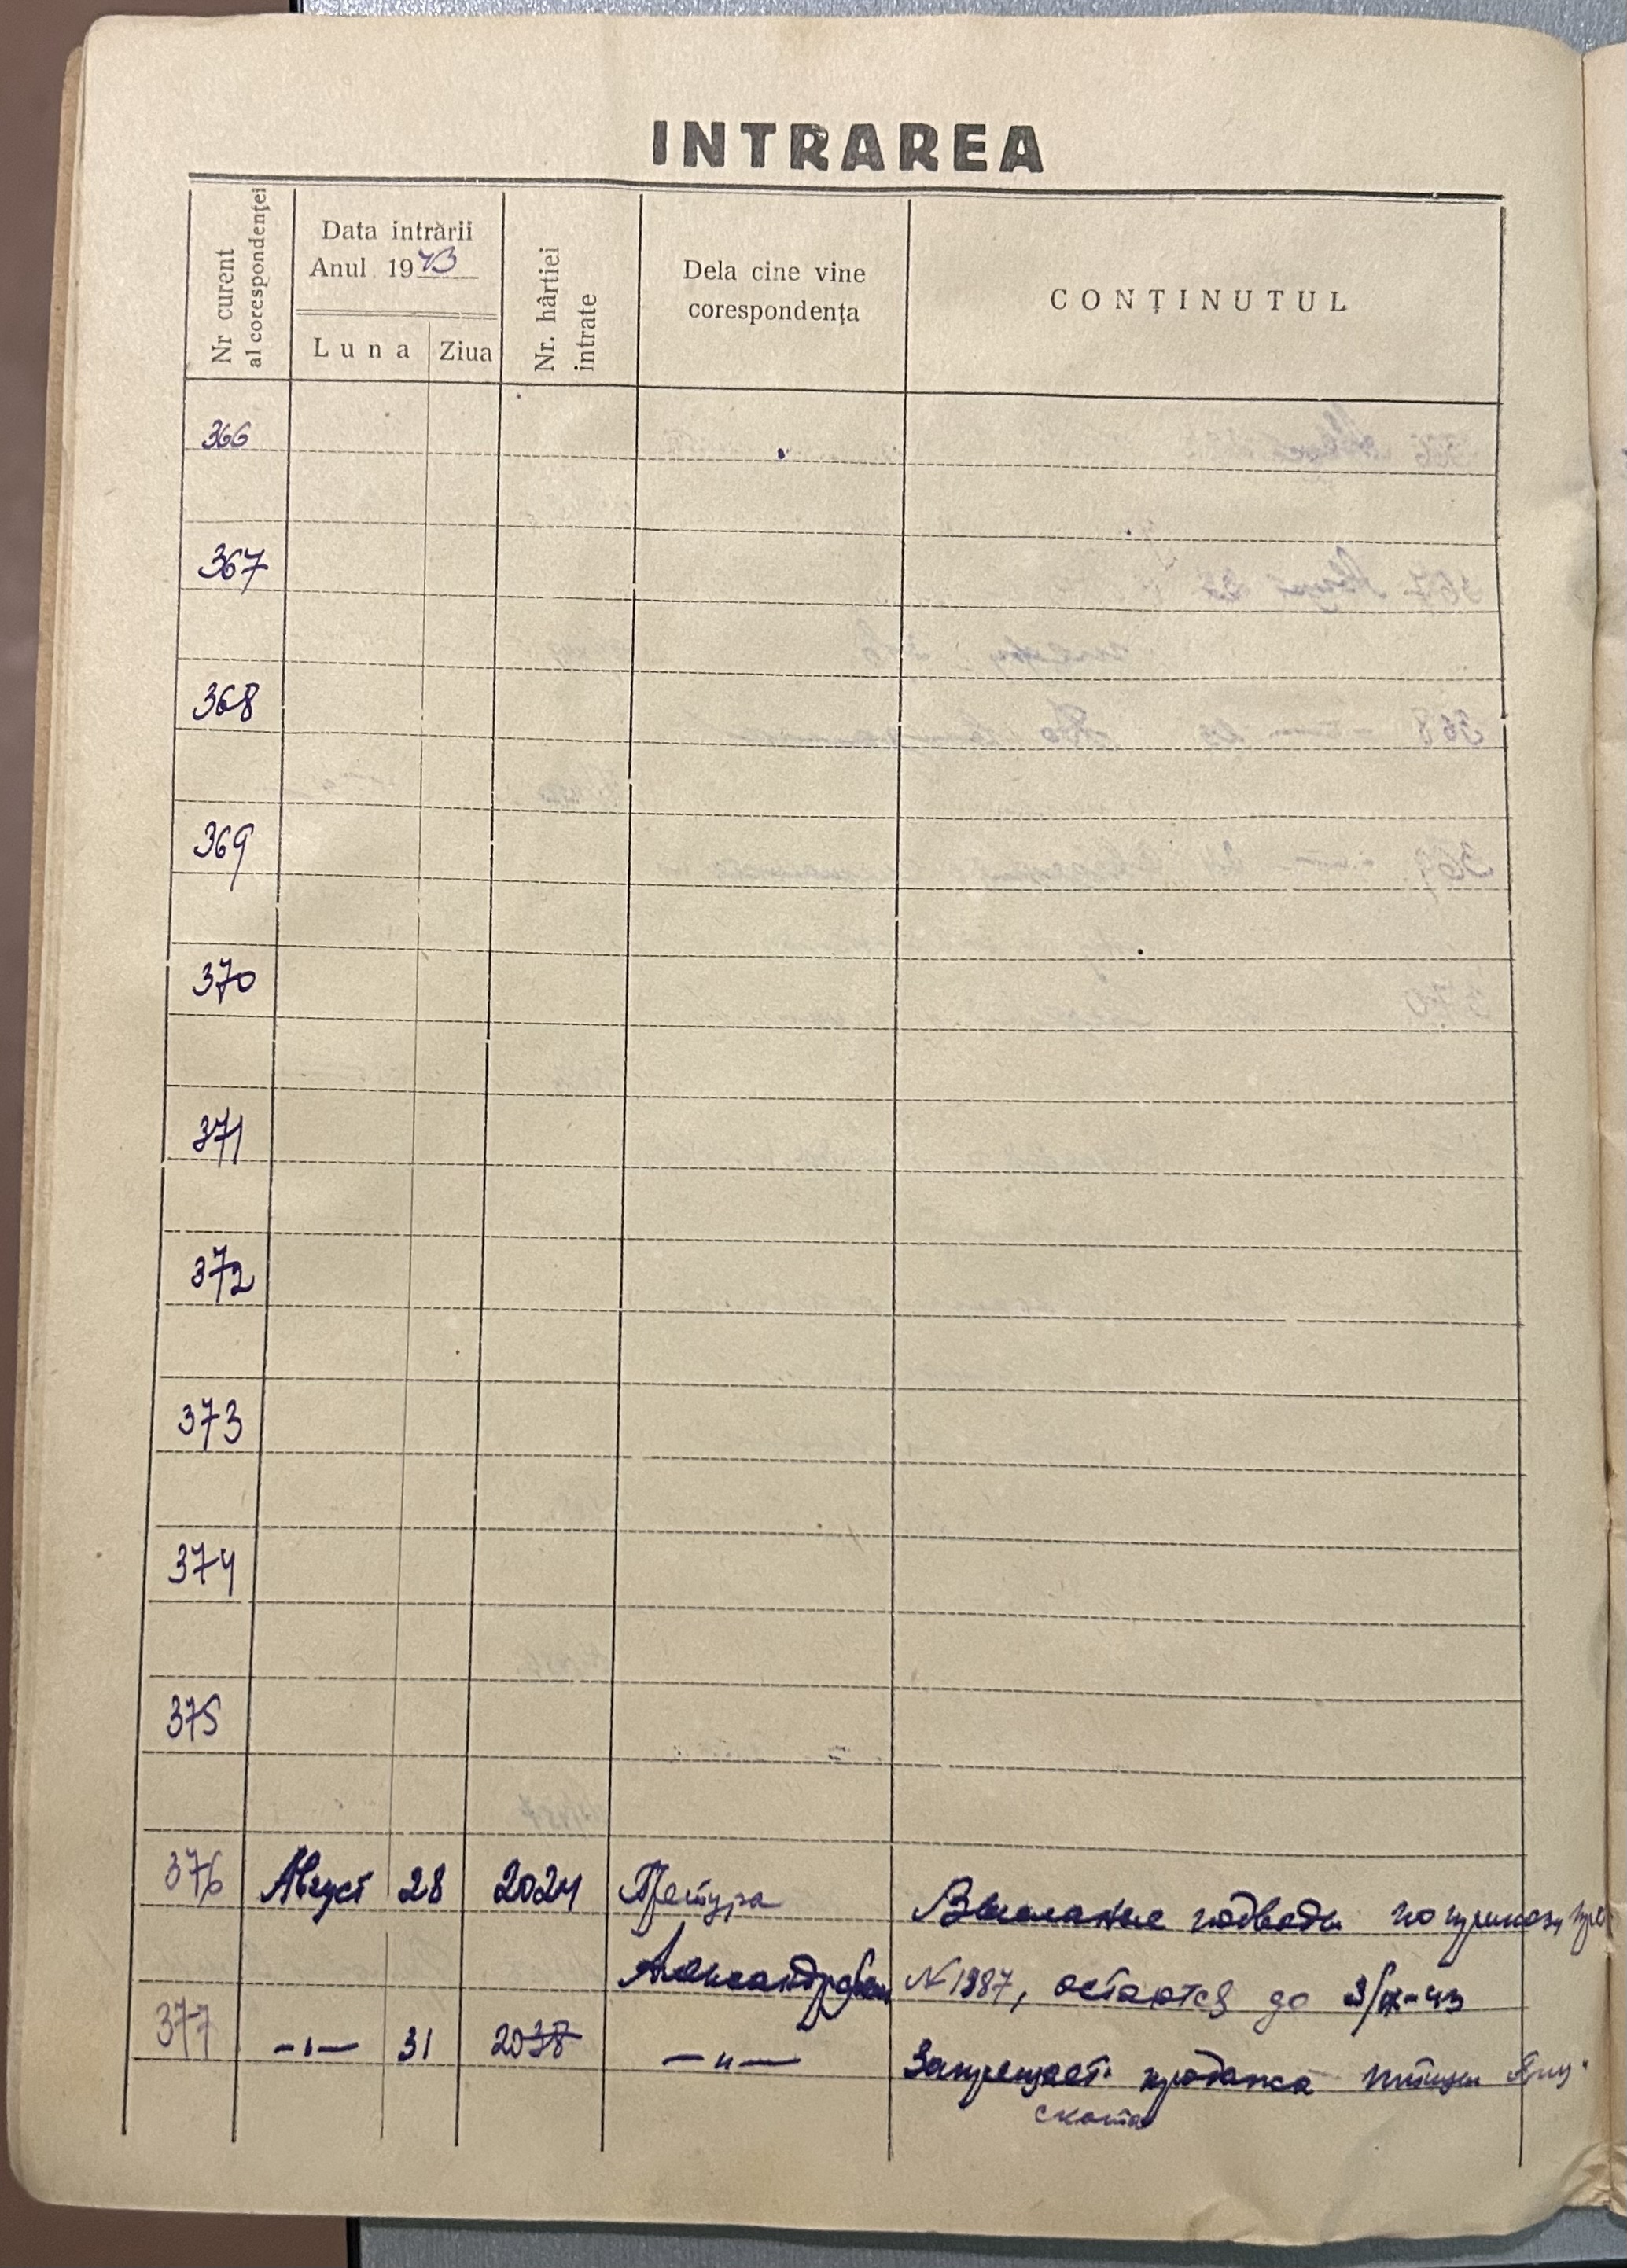 INTRAREA
Nr curent
al corespondenței
Data intrării
Anul 1943
Luna
Ziua
Nr. hârtiei
intrate
Dela cine vine
corespondența
CONȚINUTUL
366
367
368
369
370
371
372
373
374
375
376 Август 28 2024 Претура подводы по приказу
Александрфельд №1987, остаются до 3/IX-43
377 —"— 31 2038 —"— Запрещает продажа птицы яиц
скота